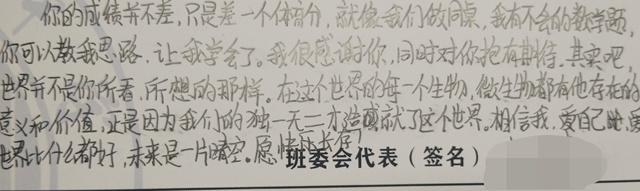 你的成绩并不差,只是差一个体育分,就像我们做同桌,我有不会的数学题,
你可以教我思路,让我学会了。我很感谢你,同时对你抱有期待。其实吧,
世界并不是你所看,所想的那样。在这个世界的每一个生物,微生物都有他存在的
意义和价值,正是因为我们的独一无二才造就了这个世界。相信我,爱自己吧,
世界比什么都好,未来是一片晴空。愿
班委会代表(签名)